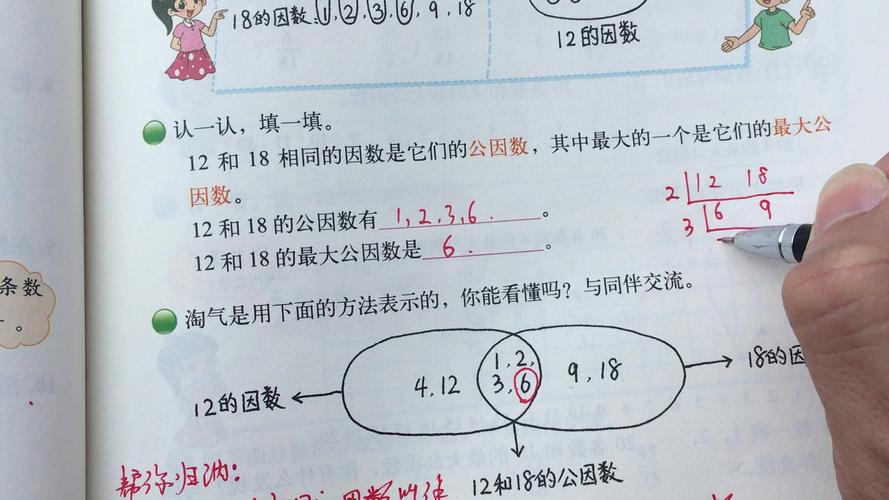 18的因数:1,2,3,6,9,18
12的因数
认一认，填一填。
12 和 18 相同的因数是它们的公因数，其中最大的一个是它们的最大公
因数。
12 和 18 的公因数有 1,2,3,6.。
12 和 18 的最大公因数是 6.。
2 12 18
3 6 9
条数
。
淘气是用下面的方法表示的，你能看懂吗？与同伴交流。
12的因数
4,12
1,2,
3,6
9,18
18的因
12和18的公因数